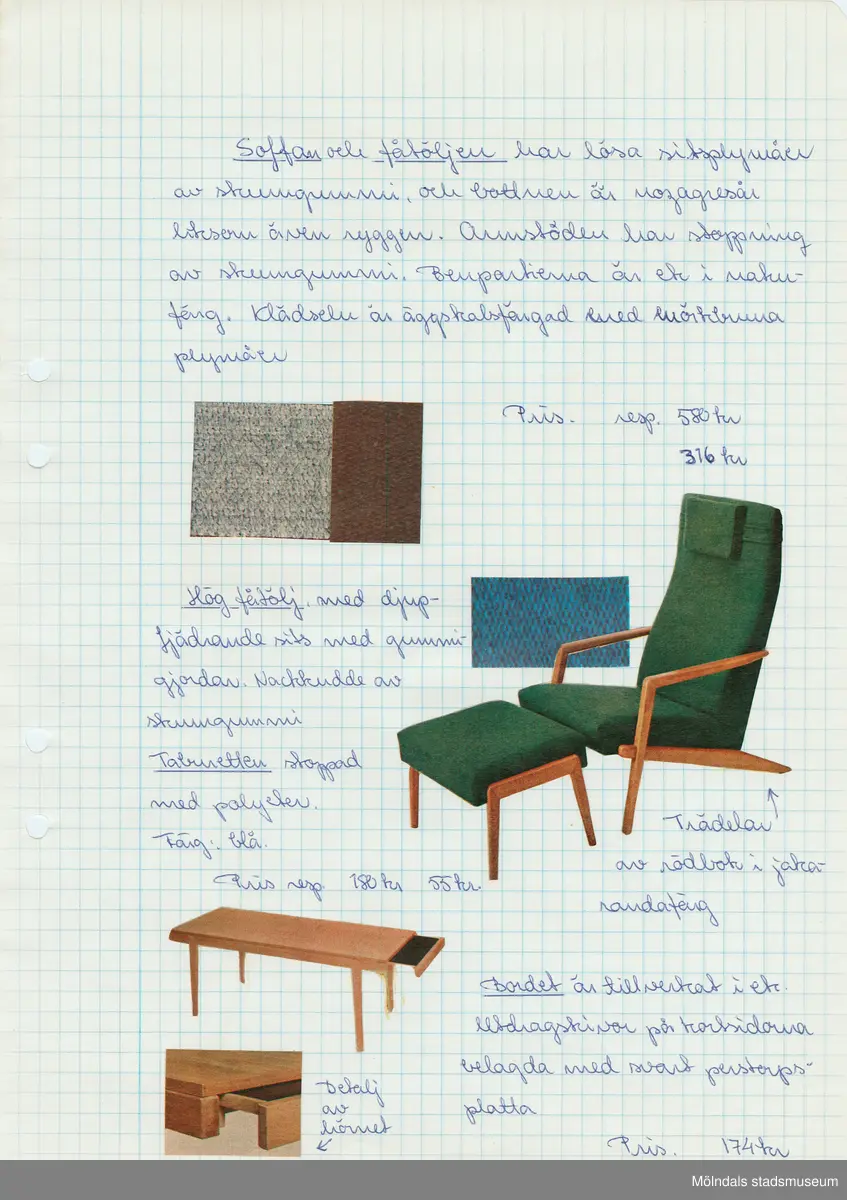 Soffan och fåtöljen har lösa sitsplymåer
av skumgummi, och bottnen är nozagresår
liksom även ryggen. Armstöden har stoppning
av skumgummi. Benpartierna är ek i natur-
färg. Klädseln är äggskalsfärgad med mörkbruna
plymåer
Pris. resp. 580 kr
316 kr
Hög fåtölj, med djup-
fjädrande sits med gummi-
gjordar. Nackkudde av
skumgummi
Taburetten stoppad
med polyeter.
Färg: blå.
Pris resp. 180 kr 55 kr.
Trädelar
av rödbok i jaka-
randafärg
Bordet är tillverkat i ek.
Utdragskivor på kortsidorna
belagda med svart perstorps-
platta
Detalj
av
hörnet
Pris. 174 kr
Mölndals stadsmuseum